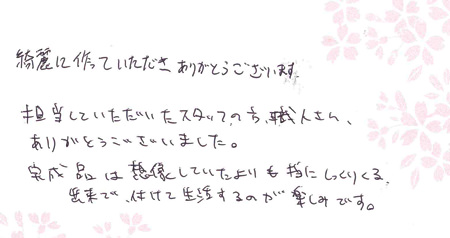 綺麗に作っていただきありがとうございます。
担当していただいたスタッフの方、職人さん、
ありがとうございました。
完成品は想像していたよりも指にしっくりくる
出来で、付けて生活するのが楽しみです。